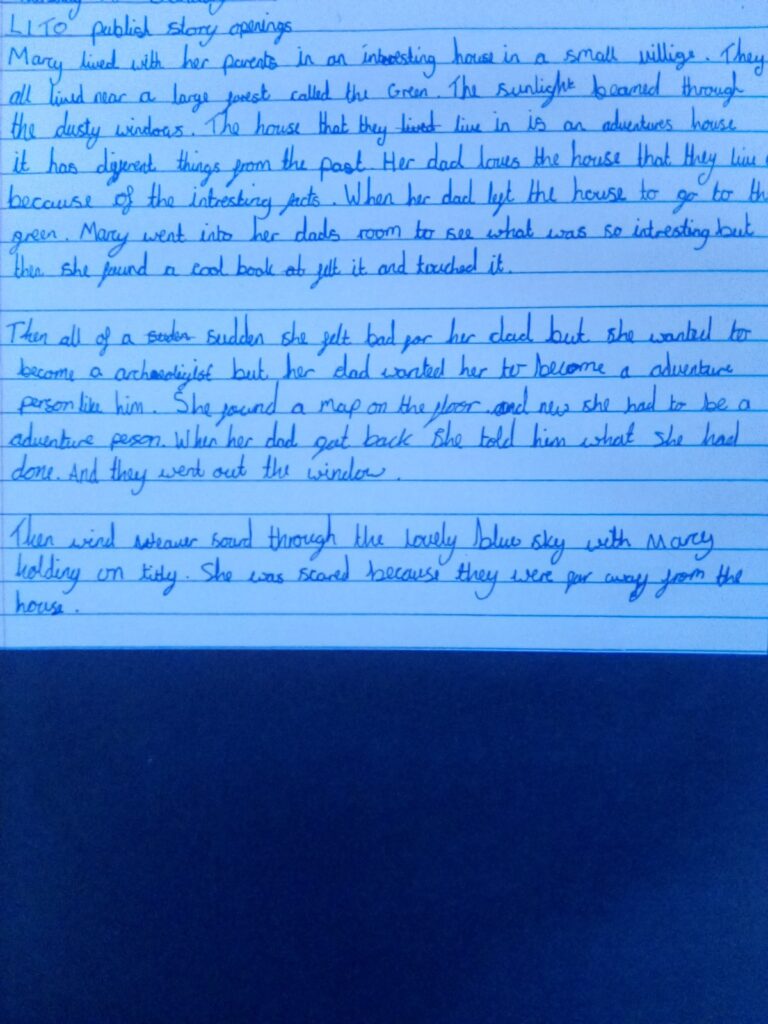 LI TO publish story openings
Marcy lived with her parents in an intresting house in a small villige. They
all lived near a large forest called the Green. The sunlight beamed through
the dusty windows. The house that they lived live in is an adventures house
it has different things from the past. Her dad loves the house that they live
because of the intresting facts. When her dad left the house to go to th
green. Marcy went into her dads room to see what was so intresting but
then she found a cool book at felt it and touched it.
Then all of a suden sudden she felt bad for her dad but she wanted to
become a archaediglst but her dad wanted her to become a adventure
person like him. She found a map on the floor and now she had to be a
adventure person. When her dad got back she told him what she had
done. And they went out the window.
Then wind weaver sourd through the lovely blue sky with Marcy
holding on titly. She was scared because they were far away from the
house.